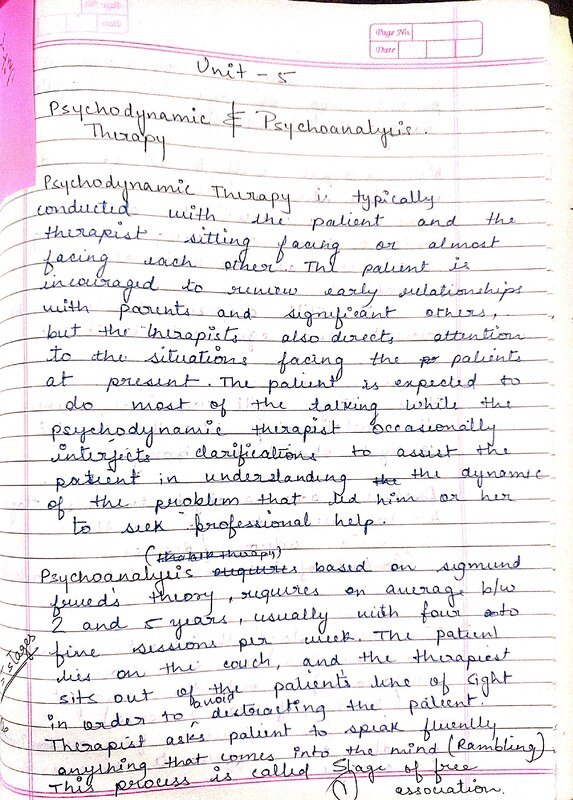 Page No.
Date
Unit - 5
Psychodynamic & Psychoanalysis.
Therapy
Psychodynamic Therapy is typically
conducted with the patient and the
therapist sitting facing or almost
facing each other. The patient is
incouraged to review early relationships
with parents and significant others,
but the therapists also directs attention
to the situations facing the patients
at present. The patient is expected to
do most of the talking while the
psychodynamic therapist occasionally
interjects clarifications to assist the
patient in understanding the dynamic
of the problem that led him or her
to seek professional help.
Psychoanalysis based on sigmund
frued's theory, requires on average b/w
2 and 5 years, usually with four to
five sessions per week. The patient
lies on the couch, and the therapist
sits out of the patient's line of sight
in order to avoid distracting the patient.
Therapist asks patient to speak fluently
anything that comes into the mind (Rambling)
This process is called Stage of free
① association.
Stages